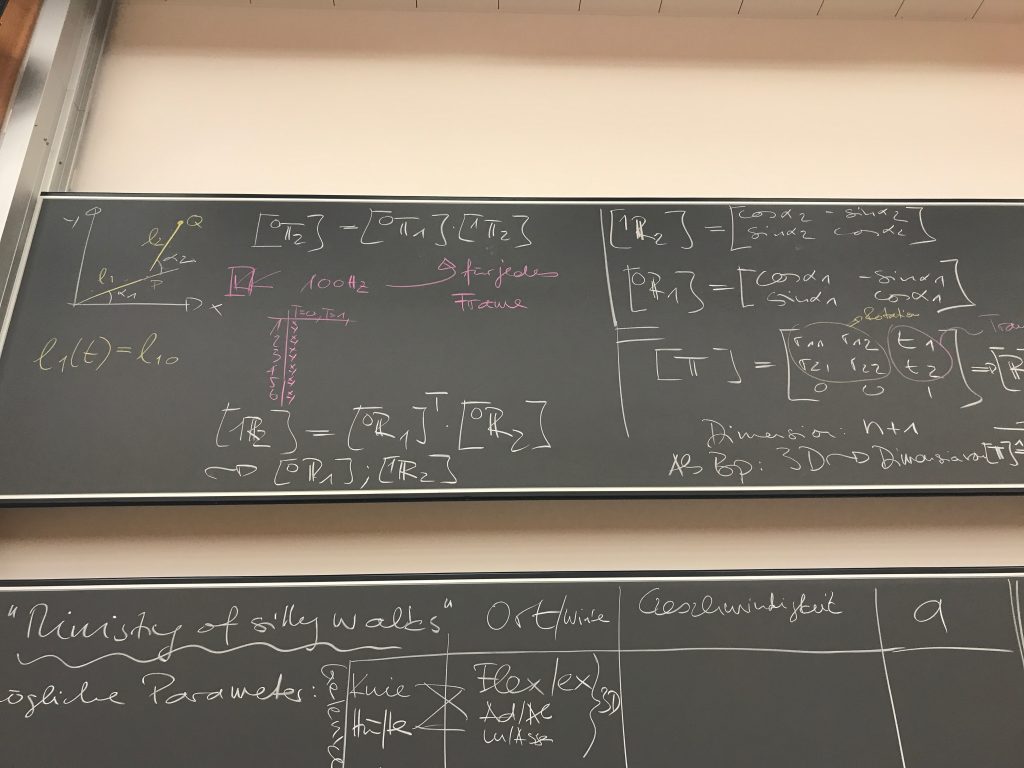 y
Q
l₂
α₂
l₁
P
α₁
x
[⁰T₂] = [⁰T₁]·[¹T₂]
100 Hz → für jedes
Frame
T=0, T=1
1
2
3
4
5
6
l₁(t) = l₁₀
[¹R₂] = [⁰R₁]ᵀ · [⁰R₂]
[⁰R₁] ; [¹R₂]
[¹R₂] = [cosα₂ -sinα₂
sinα₂ cosα₂]
[⁰R₁] = [cosα₁ -sinα₁
sinα₁ cosα₁]
Rotation
[T] = [r₁₁ r₁₂ t₁
r₂₁ r₂₂ t₂
0 0 1] ⇒ [R
Dimension: n+1
Als Bp: 3D → Dimension [T]=
"Ministry of silly walks"
Ort/winke
Geschwindigkeit
a
ögliche Parameter:
Knie
Hüfte
Flex/ex
Ad/Ab
3D